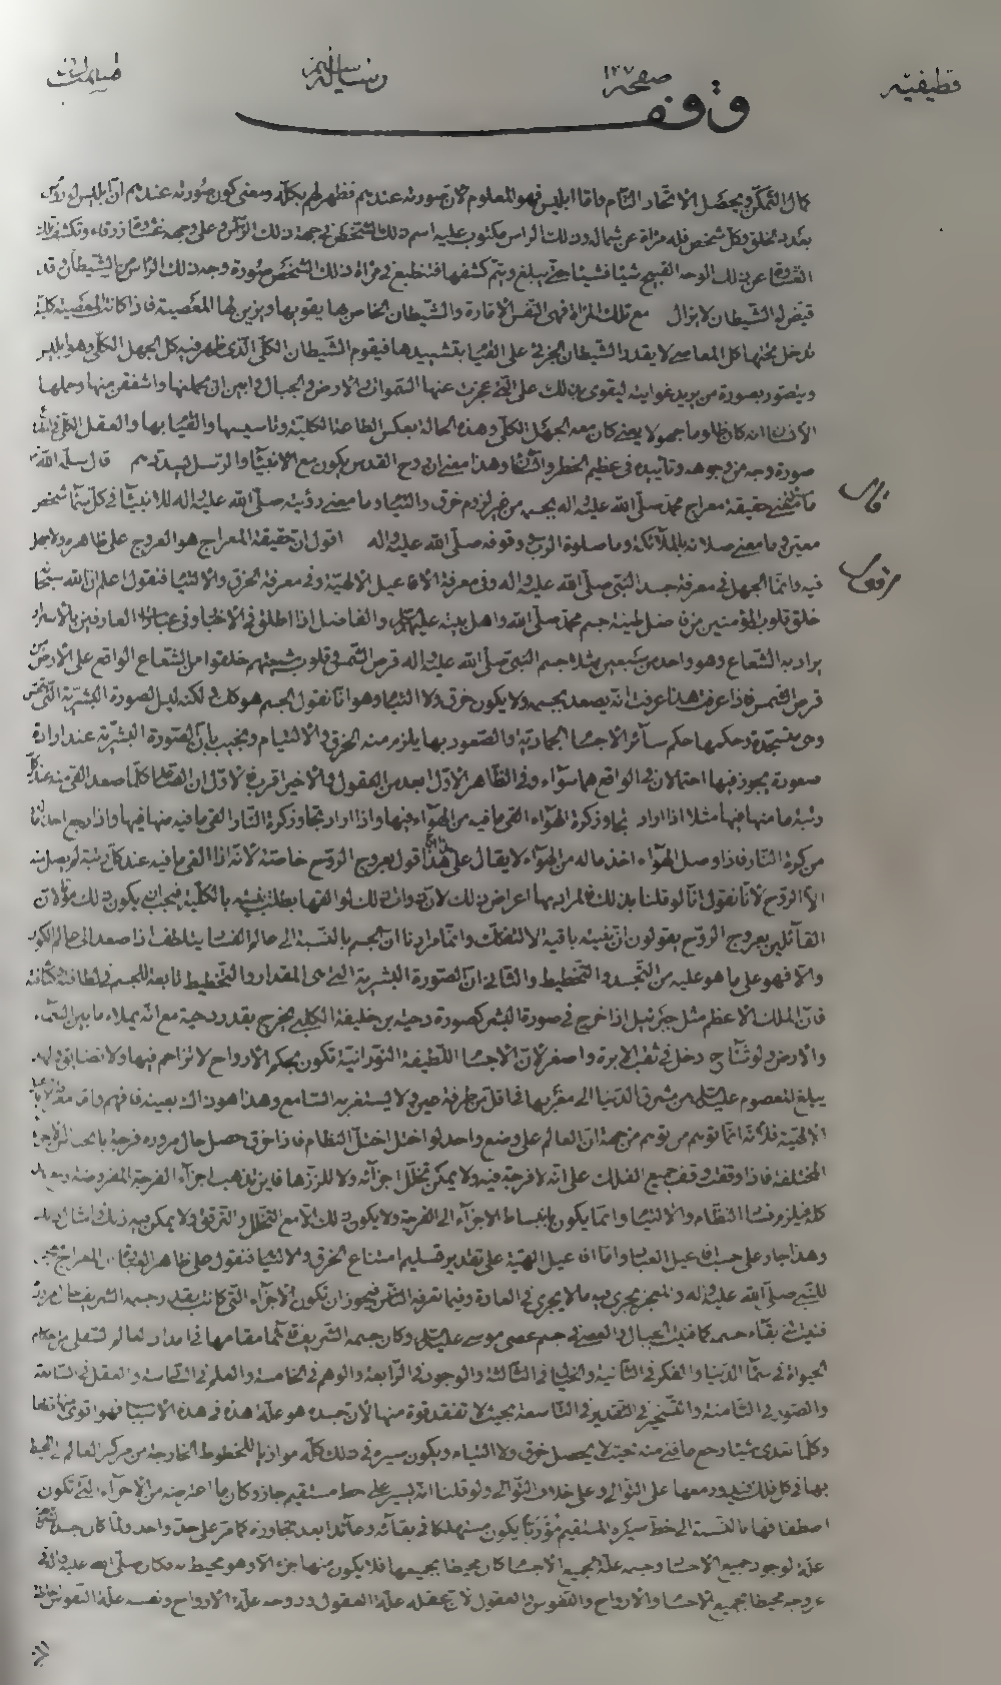 قطيفية
صفحة ١٢٧
وقف
كمال التمكن ويحصل الاتحاد التام واما ابليس فهو المعلوم لان صورته عندهم فظهر لهم بكله ومعنى كون صورته عندهم ان ابليس له رؤس
بعدد الخلق وكل شخص فله مراة عن شماله وذلك الراس مكتوب عليه اسم ذلك الشخص في جبهة ذلك الراس وعلى وجهه غشاوة زرقاء وتكشف تلك
الغشاوة عن ذلك الوجه القبيح شيئا فشيئا حتى يبلغ ويتم كشفها فتنطبع في مراة ذلك الشخص صورة وجه ذلك الراس من الشيطان وقد
قيض له الشيطان لايزال مع تلك المراة فهى النفس الامارة والشيطان الخاص بها يقويها ويزين لها المعصية فاذا كانت المعصية كلية
تدخل تحتها كل المعاصى لا يقدر الشيطان الجزئى على القيام بتشييدها فيقوم الشيطان الكلى الذى ظهر فيه كل الجهل الكلى وهو ابليس
ويتصور بصورة من يريد غوايته ليقوى بذلك على التى عجزت عنها السموات والارض والجبال وابين ان يحملنها واشفقن منها وحملها
الانسان انه كان ظلوما جهولا يعنى كان معه الجهل الكلى وهذه الحالة بعكس الطاعة الكلية وتاسيسها والقيام بها والعقل الكلى
صورة وجه من وجوهه وتأييده في عظيم الخطر والشان وهذا معنى ان روح القدس يكون مع الانبياء والرسل قال سلمه الله
قال
حقيقة معراج محمد صلى الله عليه واله بجسمه من غير لزوم خرق والتيام وما معنى رؤيته صلى الله عليه واله للانبياء في كل سماء شخص
معين وما معنى صلاته بالملائكة وما صلوة الرب ووقوفه صلى الله عليه واله اقول ان حقيقة المعراج هو العروج على ظاهره ولا جهل
فيه وانما الجهل في معرفة جسد النبى صلى الله عليه واله وفى معرفة الافاعيل الالهية وفى معرفة الخرق والالتيام فنقول اعلم ان الله سبحانه
خلق قلوب المؤمنين من فاضل طينة جسم محمد صلى الله واهل بيته عليهم السلام والفاضل اذا اطلق في الاخبار وفى عبارات العارفين بالاسرار
يراد به الشعاع وهو واحد من سبعين مثلا جسم النبى صلى الله عليه واله قرص الشمس وقلوب شيعتهم خلقوا من الشعاع الواقع على الارض من
قرص الشمس فاذا عرفت هذا عرفت انه يصعد بجسمه ولا يكون خرق ولا التيام وهو انا نقول الجسم هو كذلك لكنه لبس الصورة البشرية التى
وهى متجسدة وحكمها حكم سائر الاجسام الجمادية والصعود بها يلزم منه الخرق والالتيام ونجيب بان الصورة البشرية عند ارادة
صعوده يجوز فيها احتمالان في الواقع هما سواء وفى الظاهر الاول ابعد من العقول والاخير اقرب فالاول ان الصاعد كلما صعد القى منه عند كل
رتبة ما منها فيها مثلا اذا اراد تجاوز كرة الهواء القى ما فيه من الهواء فيها واذا اراد تجاوز كرة النار القى ما فيه منها فيها واذا رجع اخذ ماله
من كرة النار فاذا وصل الهواء اخذ ماله من الهواء لا يقال على هذا القول بعروج الروح خاصة لانه اذا القى ما فيه عند كل رتبة لم يصل منه
الا الروح لانا نقول انا لو قلنا بذلك فالمراد بها اعراض ذلك لان ذوات ذلك لو القاها بطلت بنيته بالكلية فيجب ان يكون ذلك مؤلا لان
القائلين بعروج الروح يقولون ان بنيته باقية لا تتفكك وانما مرادنا ان الجسم بالنسبة الى عالم الفساد يتلطف اذا صعد الى عالم الكون
والا فهو على ما هو عليه من التجسد والتخطيط والثانى ان الصورة البشرية التى هى المقدار والتخطيط تابعة للجسم في لطافته وكثافته
فان الملك الاعظم مثل جبرئيل اذا خرج في صورة البشر كصورة دحية بن خليفة الكلبى يخرج بقدر دحية مع انه يملاء ما بين السماء
والارض ولو شاء دخل في ثقب الابرة واصغر لان الاجسام اللطيفة النورانية تكون بحكم الارواح لا تزاحم فيها ولا تضايق ولهذا
يبلغ المعصوم عليه السلام من مشرق الدنيا الى مغربها في اقل من طرفة عين ولا يستغربه السامع وهذا هو ذاك بعينه فافهم واما معرفة الافاعيل
الالهية فلانه انما توهم من توهم من جهة ان العالم على وضع واحد لو اختل اختل النظام فاذا خرق حصل حال مروره فرجة
المختلفة فاذا وقفت وقف جميع الفلك على انه لا فرجة فيه ولا يمكن تخلل اجزائه ولا تلززها فاين تذهب اجزاء الفرجة المفروضة
كله فيلزم فساد النظام والالتيام وانما يكون بانبساط الاجزاء الى الفرجة ولا يكون ذلك الا مع التخلل والترقق ولا يمكن فيه ذلك وامثال ذلك
وهذا جار على حسب افاعيل العباد واما افاعيل الهية على تقدير تسليم امتناع الخرق والالتيام فنقول على ظاهر العبارة ان المعراج معجز
للنبى صلى الله عليه واله والمعجز يجرى فيه ما لا يجرى في العادة وفيما تعرفه البشر فيجوز ان تكون الاجزاء التى كانت بقدر جسمه الشريف حال مروره
فنيت في بقاء جسمه كما فنيت الحبال والعصى في جسم عصى موسى عليه السلام وكان جسمه الشريف قائما مقامها في امداد العالم السفلى من احكام
الحيوة في سماء الدنيا والفكر في الثانية والخيال في الثالثة والوجود في الرابعة والوهم في الخامسة والعلم في السادسة والعقل في السابعة
والصور في الثامنة والتسخير في التقدير في التاسعة بحيث لا تفقد قوة منها لان جسده هو علة هذه في هذه الاسباب فهو اقوى منها
وكلما تعدى شيئا رجع ما فنى منه بحيث لا يحصل خرق ولا التيام ويكون سيره في ذلك كله موازيا للخطوط الخارجة من مركز العالم الى المحيط
بها في كل فلك فيدور معها على التوالى وعلى خلاف التوالى ولو قلنا انه يسير على خط مستقيم جاز وكان ما اعترضه من الاجزاء التى تكون
اصطفافها بالنسبة الى خط سيره المستقيم مؤربا يكون مستهلكا في بقائه وعائدا بعد تجاوزه كما مر على حد واحد ولما كان جسده الشريف
علة لوجود جميع الاجسام وجسمه علة لجميع الاجسام كان محيطا بجميعها فلا يكون منها جزء الا وهو محيط به فكان صلى الله عليه واله في
عروجه محيطا بجميع الاجسام والارواح والنفوس والعقول لان عقله علة العقول وروحه علة الارواح ونفسه علة النفوس